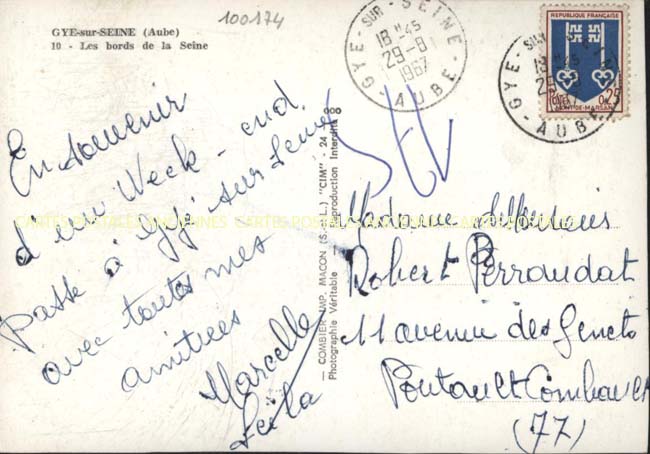 100174
GYE-sur-SEINE (Aube)
10 - Les bords de la Seine
En souvenir
d'un Week-end
Passé à Gyé sur Seine
avec toutes mes
amitiées
Marcelle
Leila
COMBIER IMP. MACON (S.-&-L.) "CIM"
Photographie Véritable - Reproduction Interdite
GYE-SUR-SEINE
18 H 45
29-8
1967
AUBE
REPUBLIQUE FRANÇAISE
0,25
MONT-DE-MARSAN
GYE-SUR-
AUBE
Madame
Robert Perraudat
11 avenue des Genets
Pontault Combault
(77)
CARTES POSTALES ANCIENNES CARTES POSTALES ANCIENNES CARTES POSTALES